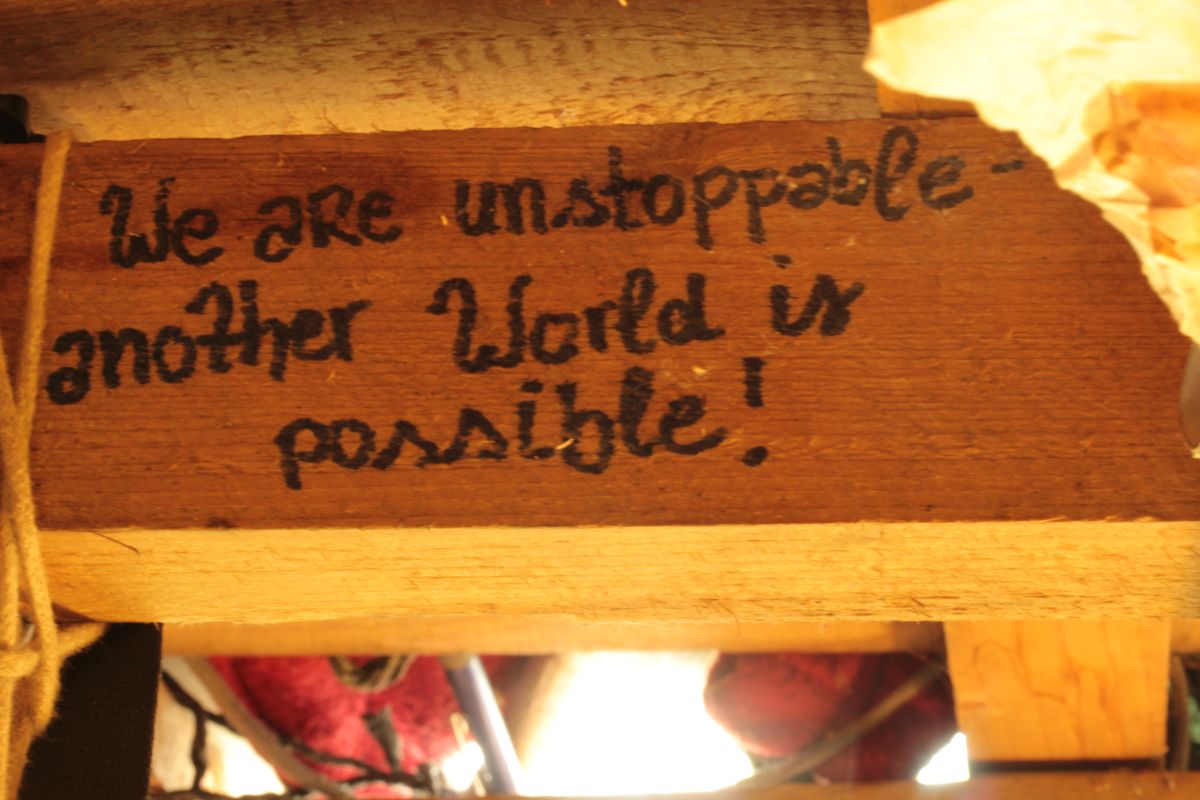 We aRe unstoppable -
another World is
possible!